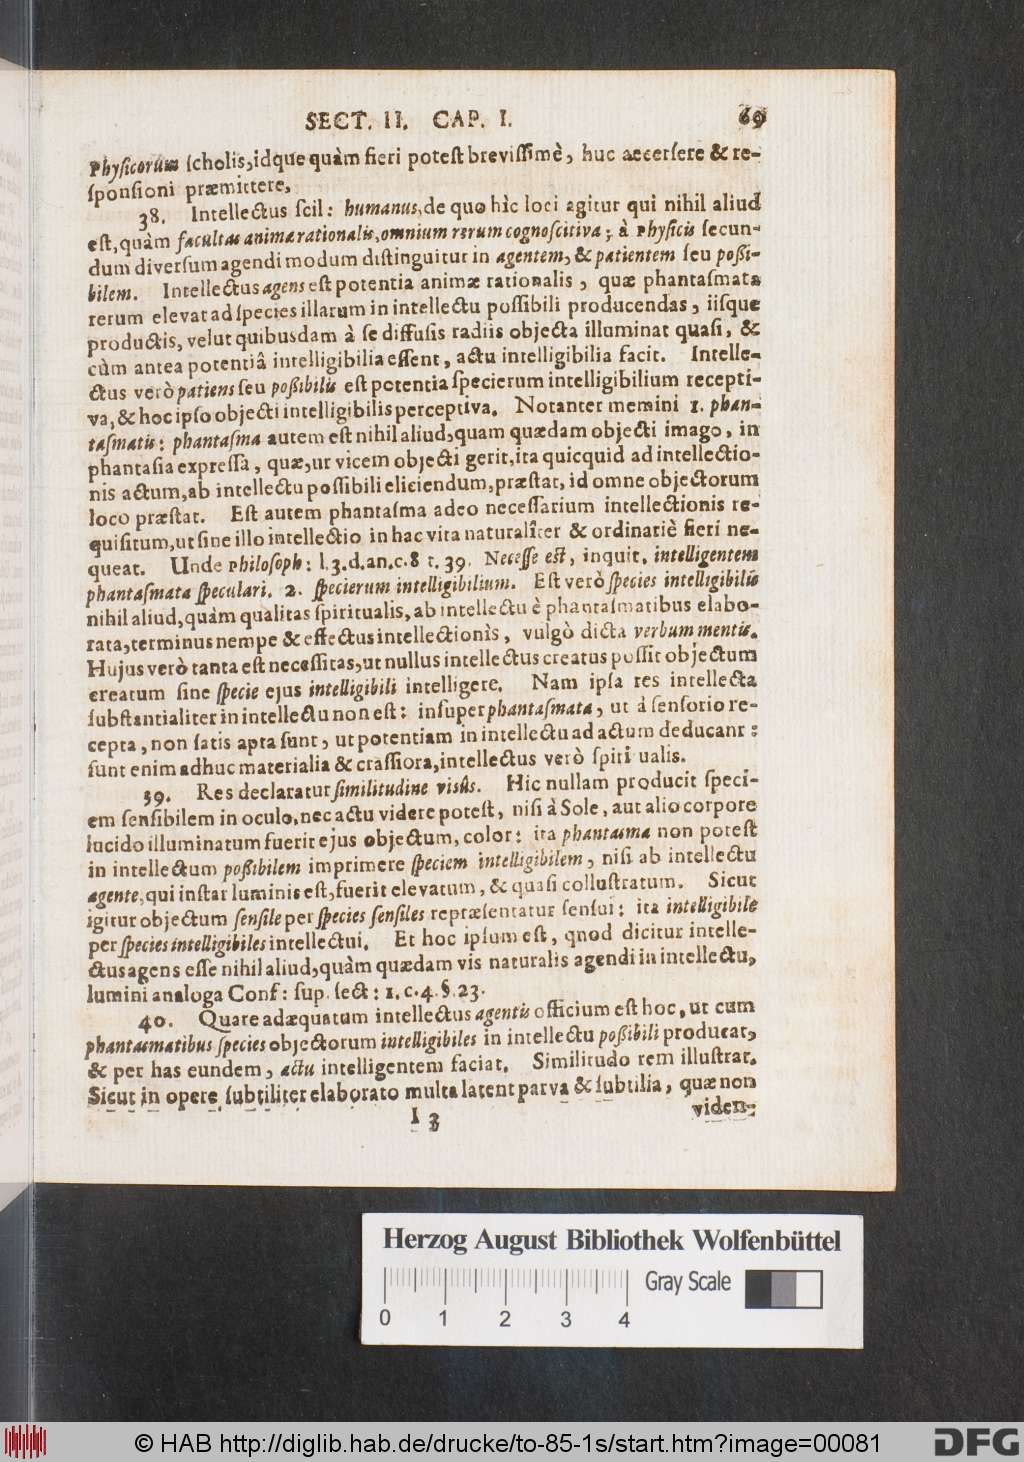 SECT. II. CAP. I. 69
Physicorum scholis, idque quàm fieri potest brevissimè, huc accersere & re-
sponsioni præmittere.
38. Intellectus scil: humanus, de quo hìc loci agitur qui nihil aliud
est, quàm facultas animæ rationalis, omnium rerum cognoscitiva; à Physicis secun-
dum diversum agendi modum distinguitur in agentem, & patientem seu possi-
bilem. Intellectus agens est potentia animæ rationalis, quæ phantasmata
rerum elevat ad species illarum in intellectu possibili producendas, iisque
productis, velut quibusdam à se diffusis radiis objecta illuminat quasi, &
cùm antea potentiâ intelligibilia essent, actu intelligibilia facit. Intelle-
ctus verò patiens seu possibilis est potentia specierum intelligibilium recepti-
va, & hoc ipso objecti intelligibilis perceptiva. Notanter memini 1. phan-
tasmatis: phantasma autem est nihil aliud, quam quædam objecti imago, in
phantasia expressa, quæ, ut vicem objecti gerit, ita quicquid ad intellectio-
nis actum, ab intellectu possibili eliciendum, præstat, id omne objectorum
loco præstat. Est autem phantasma adeo necessarium intellectionis re-
quisitum, ut sine illo intellectio in hac vita naturalîter & ordinariè fieri ne-
queat. Unde Philosoph: l.3.d.an.c.8 t. 39. Necesse est, inquit, intelligentem
phantasmata speculari. 2. specierum intelligibilium. Est verò species intelligibilis
nihil aliud, quàm qualitas spiritualis, ab intellectu è phantasmatibus elabo-
rata, terminus nempe & effectus intellectionìs, vulgò dicta verbum mentis.
Hujus verò tanta est necessitas, ut nullus intellectus creatus possit objectum
creatum sine specie ejus intelligibili intelligere. Nam ipsa res intellecta
substantialiter in intellectu non est: insuper phantasmata, ut à sensorio re-
cepta, non satis apta sunt, ut potentiam in intellectu ad actum deducant:
sunt enim adhuc materialia & crassiora, intellectus verò spiri ualis.
39. Res declaratur similitudine visûs. Hic nullam producit speci-
em sensibilem in oculo, nec actu videre potest, nisi à Sole, aut alio corpore
lucido illuminatum fuerit ejus objectum, color: ita phantasma non potest
in intellectum possibilem imprimere speciem intelligibilem, nisi ab intellectu
agente, qui instar luminis est, fuerit elevatum, & quasi collustratum. Sicut
igitur objectum sensile per species sensiles repræsentatur sensui: ita intelligibile
per species intelligibiles intellectui. Et hoc ipsum est, quod dicitur intelle-
ctus agens esse nihil aliud, quàm quædam vis naturalis agendi in intellectu,
lumini analoga Conf: sup. sect: 1. c. 4. §. 23.
40. Quare adæquatum intellectus agentis officium est hoc, ut cum
phantasmatibus species objectorum intelligibiles in intellectu possibili producat,
& per has eundem, actu intelligentem faciat. Similitudo rem illustrat.
Sicut in opere subtiliter elaborato multa latent parva & subtilia, quæ non
I 3 viden-
Herzog August Bibliothek Wolfenbüttel
Gray Scale
0 1 2 3 4
© HAB http://diglib.hab.de/drucke/to-85-1s/start.htm?image=00081
DFG